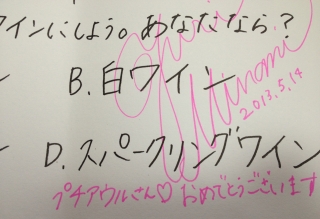 ワインにしよう。あなたなら?
B. 白ワイン
Minami
2013.5.14
D. スパークリングワイン
プチアウルさん♡おめでとうございます